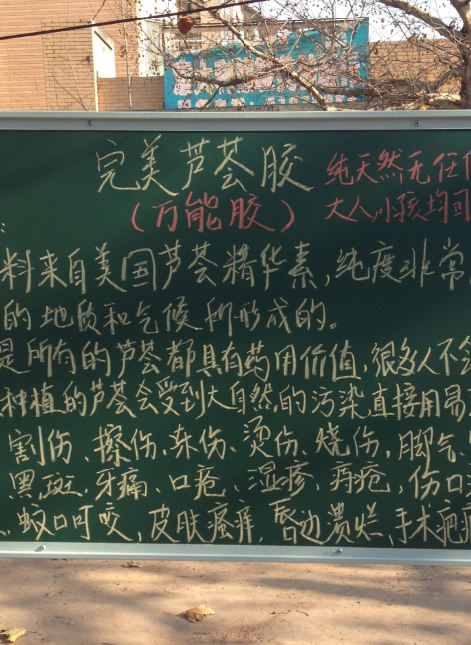 完美芦荟胶
纯天然无任
(万能胶)
大人,小孩均可
料来自美国芦荟精华素,纯度非常
的地质和气候所形成的。
是所有的芦荟都具有药用价值,很多人不会
种植的芦荟会受到大自然的污染直接用易
割伤、擦伤、冻伤、烫伤、烧伤,脚气、
黑斑、牙痛、口疮、湿疹、痔疮,伤口
、蚊口叮咬,皮肤瘙痒,唇边溃烂,手术疤